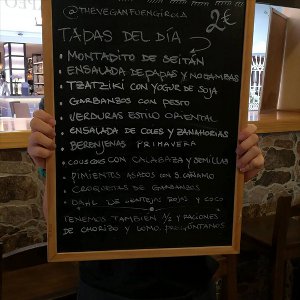 @THEVEGANFUENGIROLA
2€
TAPAS DEL DÍA
• MONTADITO DE SEITÁN
• ENSALADA DE PAPAS Y NO GAMBAS
• TZATZIKI CON YOGUR DE SOJA
• GARBANZOS CON PESTO
• VERDURAS ESTILO ORIENTAL
• ENSALADA DE COLES Y ZANAHORIAS
• BERENJENAS PRIMAVERA
• COUS COUS CON CALABAZA Y SEMILLAS
• PIMIENTOS ASADOS CON S. CÁÑAMO
• CROQUETAS DE GARBANZOS
• DAHL DE LENTEJAS ROJAS Y COCO
TENEMOS TAMBIÉN 1/2 Y RACIONES
DE CHORIZO Y LOMO. PREGÚNTANOS